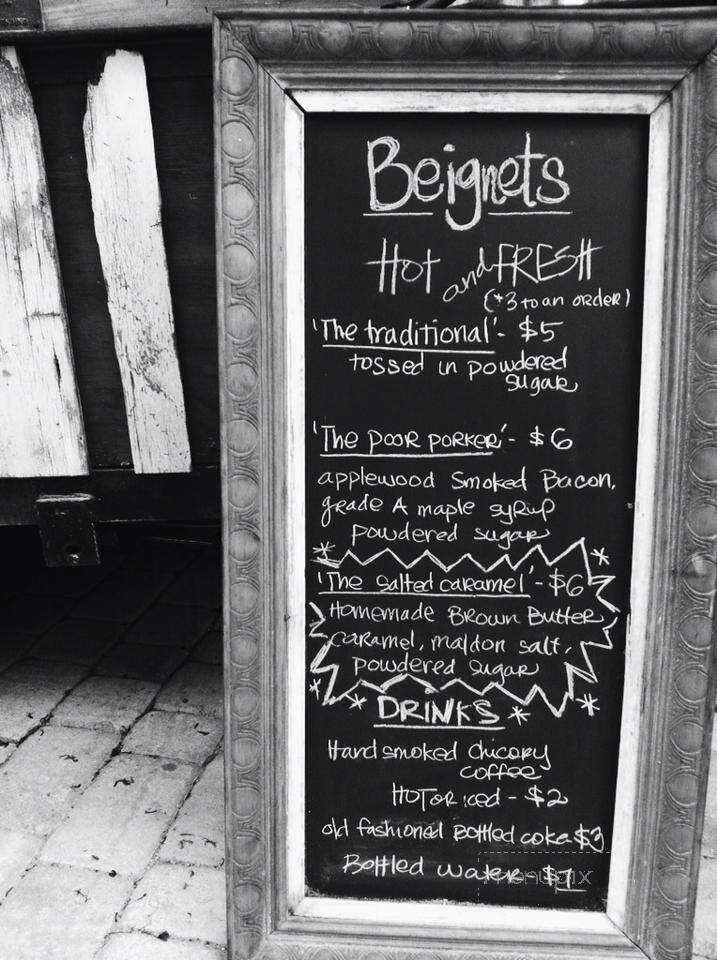 Beignets
Hot and FRESH
(*3 to an order)
'The traditional' - $5
tossed in powdered
sugar
'The poor porker' - $6
applewood Smoked Bacon,
grade A maple syrup
powdered sugar
'The salted caramel' - $6
Homemade Brown Butter
caramel, maldon salt,
powdered sugar
DRINKS
Hand smoked Chicory
coffee
HOT or iced - $2
old fashioned Bottled coka $3
Bottled water $1
menupix